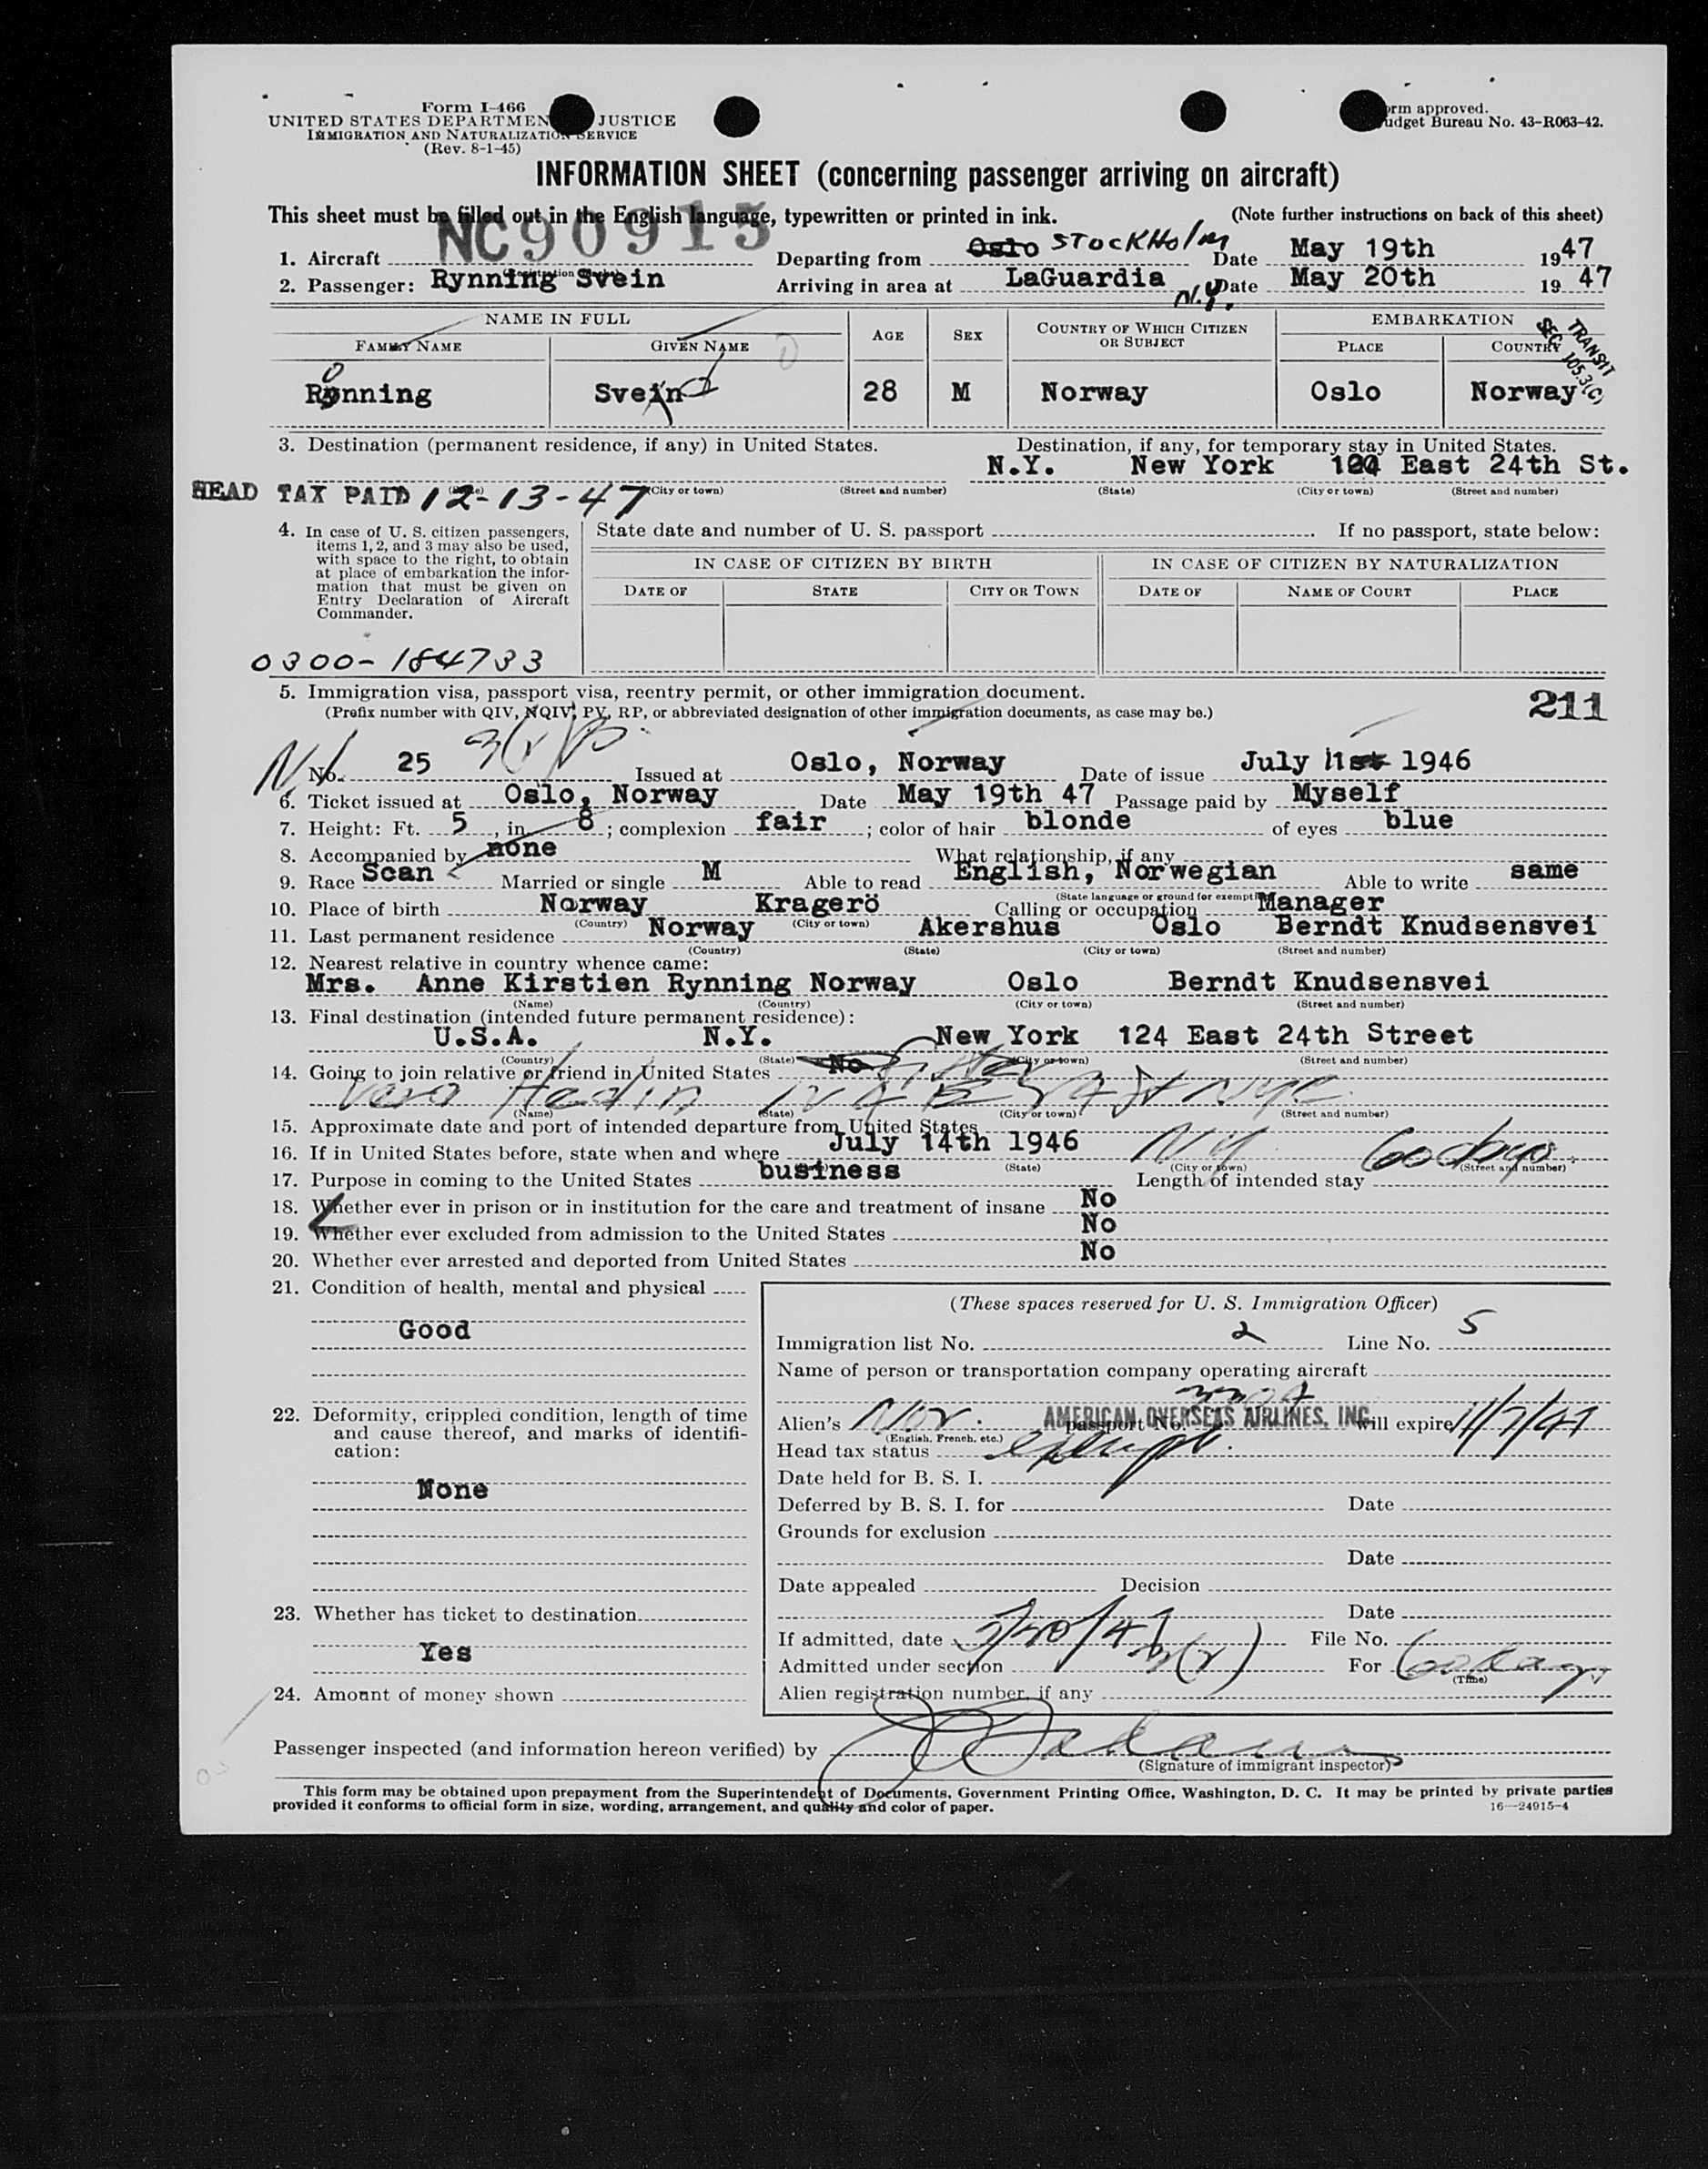 Form I-466
UNITED STATES DEPARTMEN JUSTICE
IMMIGRATION AND NATURALIZATION SERVICE
(Rev. 8-1-45)
orm approved.
udget Bureau No. 43-R063-42.
INFORMATION SHEET (concerning passenger arriving on aircraft)
This sheet must be filled out in the English language, typewritten or printed in ink. (Note further instructions on back of this sheet)
1. Aircraft NC90915 Departing from Oslo STOCKHOlm Date May 19th 1947
(Registration Marks)
2. Passenger: Rynning Svein Arriving in area at LaGuardia N.Y. Date May 20th 19 47
NAME IN FULL AGE SEX COUNTRY OF WHICH CITIZEN OR SUBJECT EMBARKATION
FAMILY NAME GIVEN NAME PLACE COUNTRY
TRANSIT
SEC. 105.3(C)
Rynning Svein 28 M Norway Oslo Norway
3. Destination (permanent residence, if any) in United States. Destination, if any, for temporary stay in United States.
N.Y. New York 124 East 24th St.
HEAD TAX PAID 12-13-47 (City or town) (Street and number) (State) (City or town) (Street and number)
4. In case of U. S. citizen passengers, items 1, 2, and 3 may also be used, with space to the right, to obtain at place of embarkation the information that must be given on Entry Declaration of Aircraft Commander.
State date and number of U. S. passport If no passport, state below:
IN CASE OF CITIZEN BY BIRTH IN CASE OF CITIZEN BY NATURALIZATION
DATE OF STATE CITY OR TOWN DATE OF NAME OF COURT PLACE
0300-184733
5. Immigration visa, passport visa, reentry permit, or other immigration document.
(Prefix number with QIV, NQIV, PV, RP, or abbreviated designation of other immigration documents, as case may be.)
211
No. 25 Issued at Oslo, Norway Date of issue July 1946
6. Ticket issued at Oslo, Norway Date May 19th 47 Passage paid by Myself
7. Height: Ft. 5, in. 8; complexion fair; color of hair blonde of eyes blue
8. Accompanied by none What relationship, if any
9. Race Scan Married or single M Able to read English, Norwegian Able to write same
(State language or ground for exemption)
10. Place of birth Norway Kragerö Calling or occupation Manager
(Country) (City or town)
11. Last permanent residence Norway Akershus Oslo Berndt Knudsensvei
(Country) (State) (City or town) (Street and number)
12. Nearest relative in country whence came:
Mrs. Anne Kirstien Rynning Norway Oslo Berndt Knudsensvei
(Name) (Country) (City or town) (Street and number)
13. Final destination (intended future permanent residence):
U.S.A. N.Y. New York 124 East 24th Street
(Country) (State) (City or town) (Street and number)
14. Going to join relative or friend in United States No
(Name) (State) (City or town) (Street and number)
15. Approximate date and port of intended departure from United States
16. If in United States before, state when and where July 14th 1946 NY 60 days
(State) (City or town) (Street and number)
17. Purpose in coming to the United States business Length of intended stay
18. Whether ever in prison or in institution for the care and treatment of insane No
19. Whether ever excluded from admission to the United States No
20. Whether ever arrested and deported from United States No
21. Condition of health, mental and physical
Good
22. Deformity, crippled condition, length of time and cause thereof, and marks of identification:
None
23. Whether has ticket to destination
Yes
24. Amount of money shown
(These spaces reserved for U. S. Immigration Officer)
Immigration list No. 2 Line No. 5
Name of person or transportation company operating aircraft
AMERICAN OVERSEAS AIRLINES, INC.
Alien's Nor. passport No. will expire 11/7/47
(English, French, etc.)
Head tax status exempt.
Date held for B. S. I.
Deferred by B. S. I. for Date
Grounds for exclusion
Date
Date appealed Decision
Date
If admitted, date 5/20/47 File No.
Admitted under section 3(2) For 60 days
(Time)
Alien registration number, if any
Passenger inspected (and information hereon verified) by
(Signature of immigrant inspector)
This form may be obtained upon prepayment from the Superintendent of Documents, Government Printing Office, Washington, D. C. It may be printed by private parties
provided it conforms to official form in size, wording, arrangement, and quality and color of paper.
16—24915-4